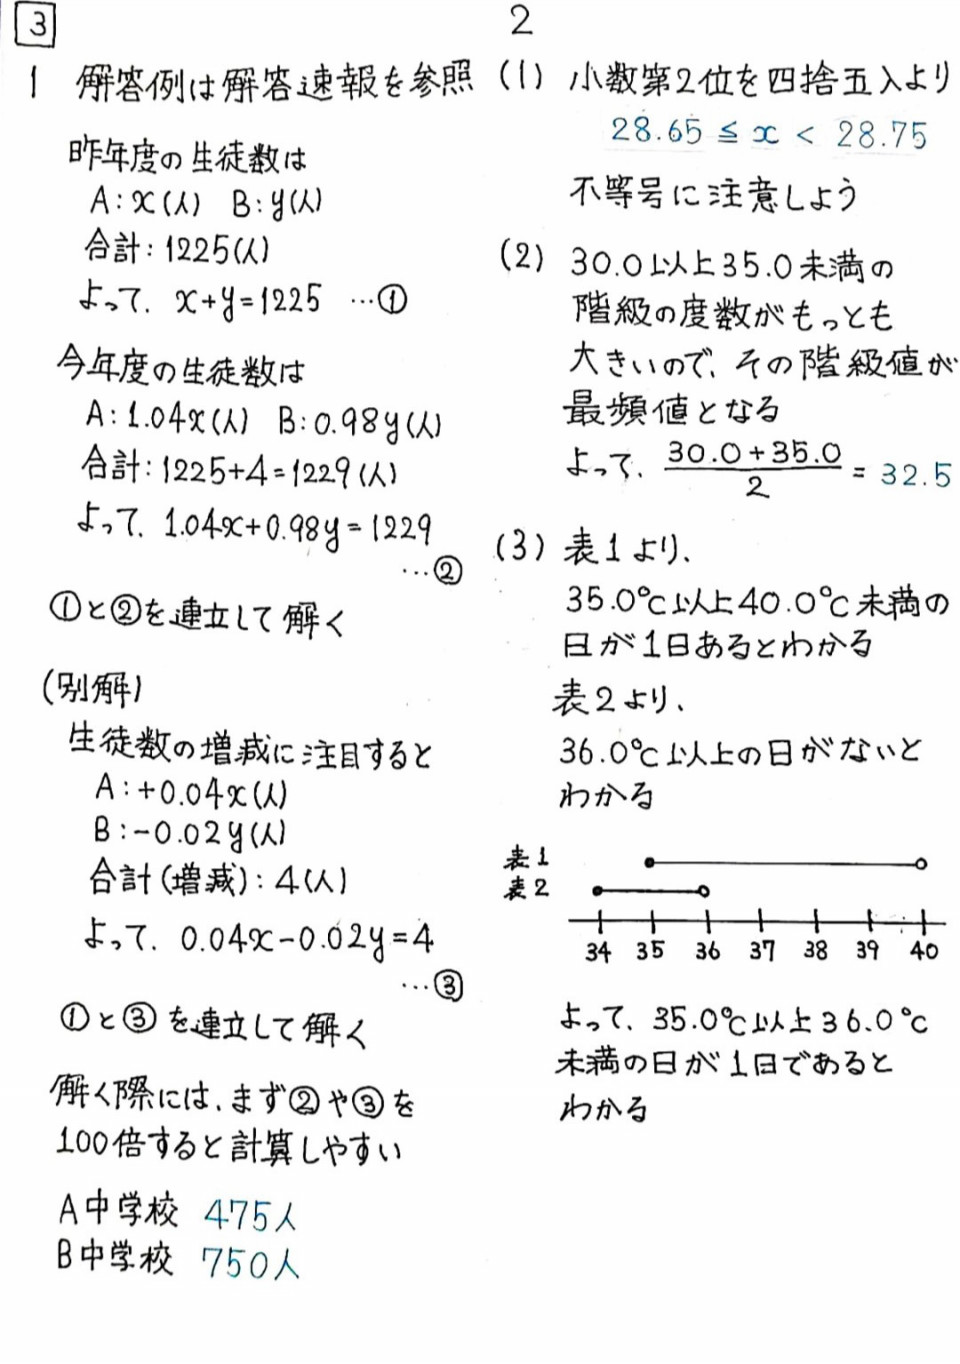 3
1 解答例は解答速報を参照
昨年度の生徒数は
A:x(人) B:y(人)
合計:1225(人)
よって、x+y=1225 …①
今年度の生徒数は
A:1.04x(人) B:0.98y(人)
合計:1225+4=1229(人)
よって、1.04x+0.98y=1229
…②
①と②を連立して解く
(別解)
生徒数の増減に注目すると
A:+0.04x(人)
B:-0.02y(人)
合計(増減):4(人)
よって、0.04x-0.02y=4
…③
①と③を連立して解く
解く際には、まず②や③を
100倍すると計算しやすい
A中学校 475人
B中学校 750人
2
(1) 小数第2位を四捨五入より
28.65 ≦ x < 28.75
不等号に注意しよう
(2) 30.0以上35.0未満の
階級の度数がもっとも
大きいので、その階級値が
最頻値となる
よって、(30.0+35.0)/2 = 32.5
(3) 表1より、
35.0℃以上40.0℃未満の
日が1日あるとわかる
表2より、
36.0℃以上の日がないと
わかる
表1
表2
34 35 36 37 38 39 40
よって、35.0℃以上36.0℃
未満の日が1日であると
わかる